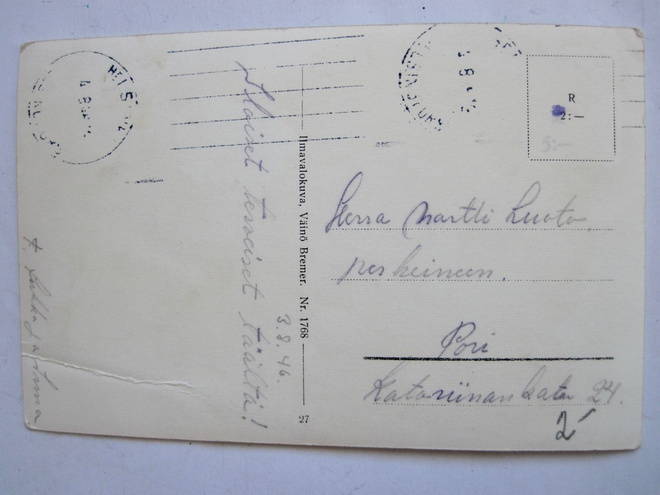 HELSINKI
R
2:—
5:—
Iloiset terveiset täältä!
3.8.46.
Ilmavalokuva, Väinö Bremer. Nr. 1768
27
Herra Martti Luoto
perheineen.
Pori
Katariinankatu 24.
2